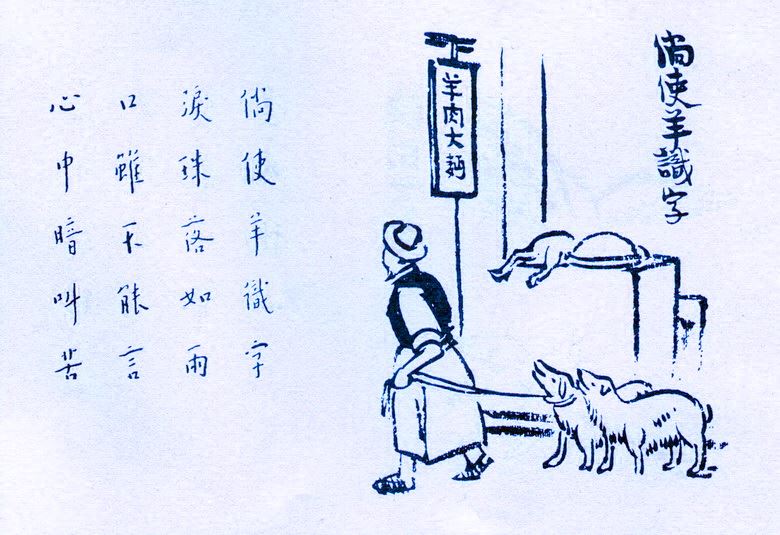 倘使羊識字
羊肉大麵
倘使羊識字
淚珠落如雨
口雖不能言
心中暗叫苦